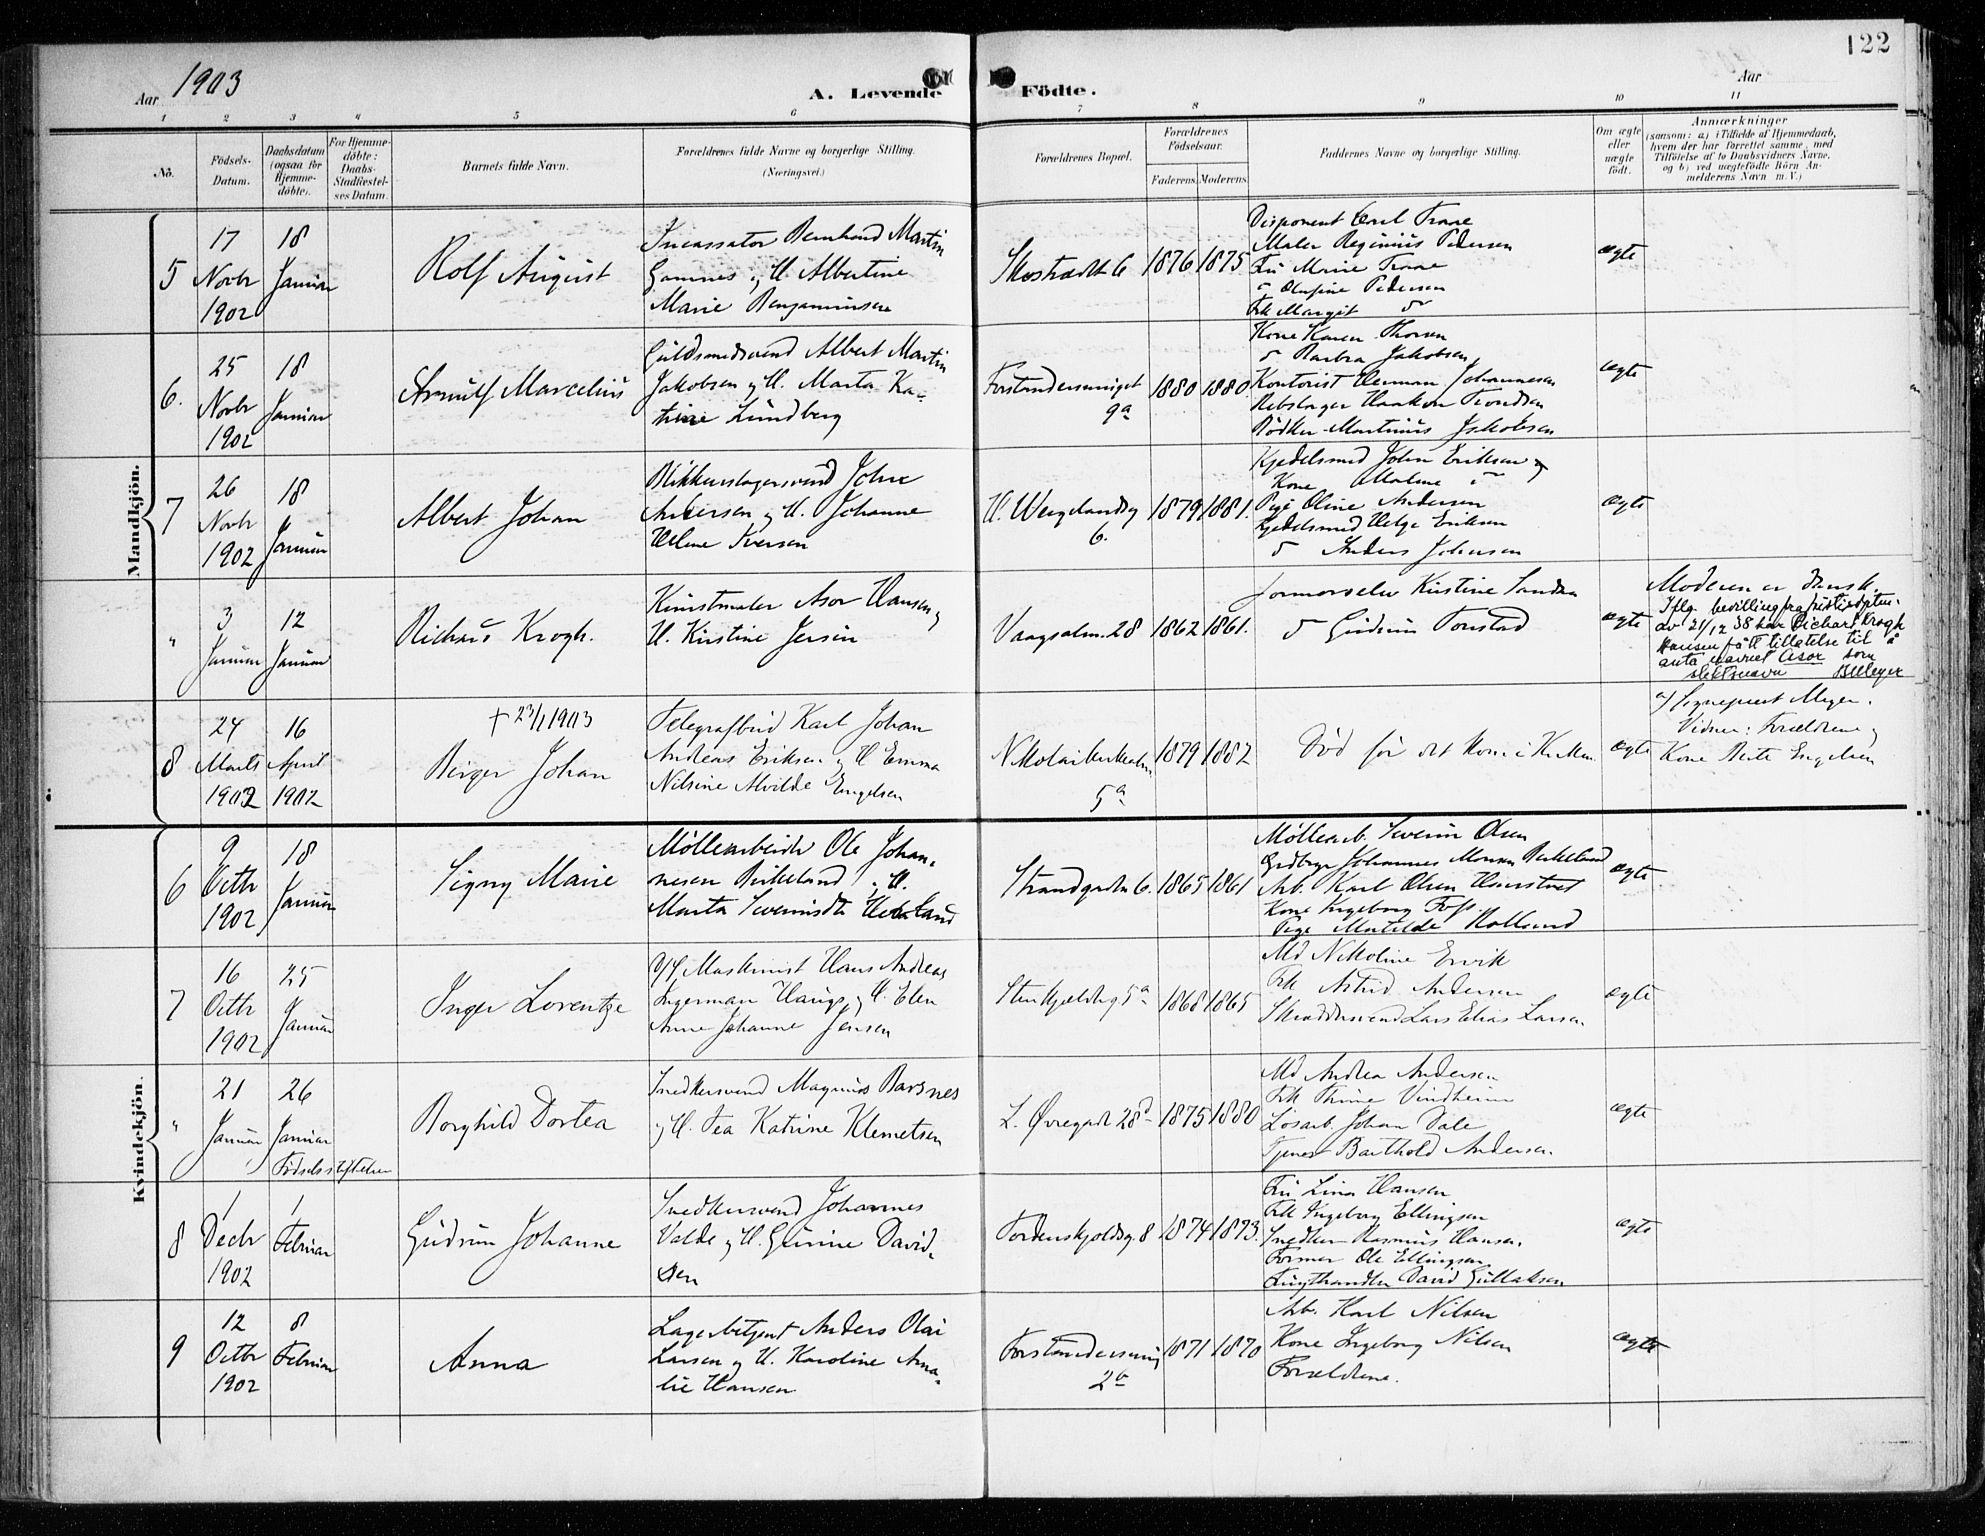 122
Aar 1903
A. Levende Födte.
Aar
1 2 3 4 5 6 7 8 9 10 11
No.
Födsels-Datum.
Daabsdatum (ogsaa for Hjemme-döbte).
For Hjemme-döbte: Daabs-Stadfæstel-ses Datum.
Barnets fulde Navn.
Forældrenes fulde Navne og borgerlige Stilling. (Næringsvei.)
Forældrenes Bopæl.
Forældrenes Födselsaar.
Faderens. Moderens.
Faddernes Navne og borgerlige Stilling.
Om ægte eller uægte födt.
Anmærkninger
(saasom: a) i Tilfælde af Hjemmedaab,
hvem der har forrettet samme, med
Tilföielse af to Daabsvidners Navne,
og b) ved uægtefödte Börn An-
melderens Navn m. V.)
Mandkjön.
5
17 Novbr 1902
18 Januar
Rolf August
Incassator Bernhard Martin
Gamnes og H. Albertine
Marie Benjaminsen
Skostrædet 6
1876 1875
Disponent Carl Traae
Maler Reginius Pedersen
Fru Marie Traae
" Olufine Pedersen
Frk Margit do
ægte
6.
25 Novbr 1902
18 Januar
Arnulf Marcelius
Guldsmedsvend Albert Martin
Jakobsen og H. Marta Ka-
trine Lundberg
Forstandersmuget 9a
1880 1880.
Kone Karen Thorsen
do Barbra Jakobsen
Kontorist Herman Johannesen
Rebslager Haakon Trondsen
Bödker Martinius Jakobsen
ægte
7
26 Novbr 1902
18 Januar
Albert Johan
Blikkenslagersvend John
Andersen og H. Johanne
Helene Iversen
H. Wergelandsg 6.
1879 1881.
Kjedelsmed John Eriksen og
Kone Malene
Pige Oline Andersen
Kjedelsmed Helge Eriksen
do Anders Johnsen
ægte
"
3 Januar
12 Januar
Richard Krogh.
Kunstmaler Asor Hansen og
H. Kirstine Jersin
Vaagsalm. 28
1862 1861.
Jormorselev Kirstine Sandra
do Gudrun Tonstad
ægte
Moderen er dansk.
Iflg. bevilling fra justisdptm.
av 21/12 38 har Richard Krogh
Hansen fått tillatelse til å
anta navnet Asor som
slektsnavn BMeyer
8
24 Marts 1902
16 April 1902
† 23/1 1903
Birger Johan
Telegrafbud Karl Johan
Andreas Eriksen og H Emma
Nilsine Alvilde Engelsen
Nikolaikirkealm 5a
1879 1882
Död för det kom i Kirken
ægte
a/ Sognepræst Meyer.
Vidner: Forældrene og
Kone Berte Engelsen
Kvindekjön.
6
9 Octbr 1902
18 Januar
Signy Marie
Møllearbeider Ole Johan-
nesen Birkeland og H.
Marta Severinsdtr Hetland
Strandgaden 6.
1865 1861
Møllearb. Severin Olsen
Grdbrgr Johannes Monsen Birkeland
Arb. Karl Olsen
Kone Ingeborg Foss.
Pige Matilde Hollund
ægte
7
16 Octbr 1902
25 Januar
Inger Lorentze
D/S Maskinist Hans Andreas
Ingerman Haugs og H. Elen
Anne Johanne Jensen
Stenkjeldrg. 5a
1868 1865
Md Nikoline Ervik
Frk Astrid Andersen
Skræddersvend Lars Elias Larsen
ægte
"
21 Januar
26 Januar
Födselsstiftelsen
Borghild Dortea
Snedkersvend Magnus Barsnes
og H. Tea Katrine Klemetsen
L. Øvregade 28d
1875 1880
Md Andrea Andersen
Frk Trine Vindheim
Lösarb. Johan Dale
Tjener Barthold Andersen.
ægte
8
1 Decbr 1902
1 Februar
Gudrun Johanne
Snedkersvend Johannes
Valde og H. Gurine David-
sen
Tordenskjoldsg. 8
1874 1873.
Fru Lina Hansen
Frk Ingeborg Ellingsen
Snedker Rasmus Hansen.
Former Ole Ellingsen
Frugthandler David Gullaksen
ægte
9
12 Octbr 1902
8 Februar
Anna
Lagerbetjent Anders Olai
Larsen og H. Karoline Ama-
lie Hansen
Forstandersmug 2b
1871 1870
Arb. Karl Nilsen
Kone Ingeborg Nilsen
Forældrene.
ægte